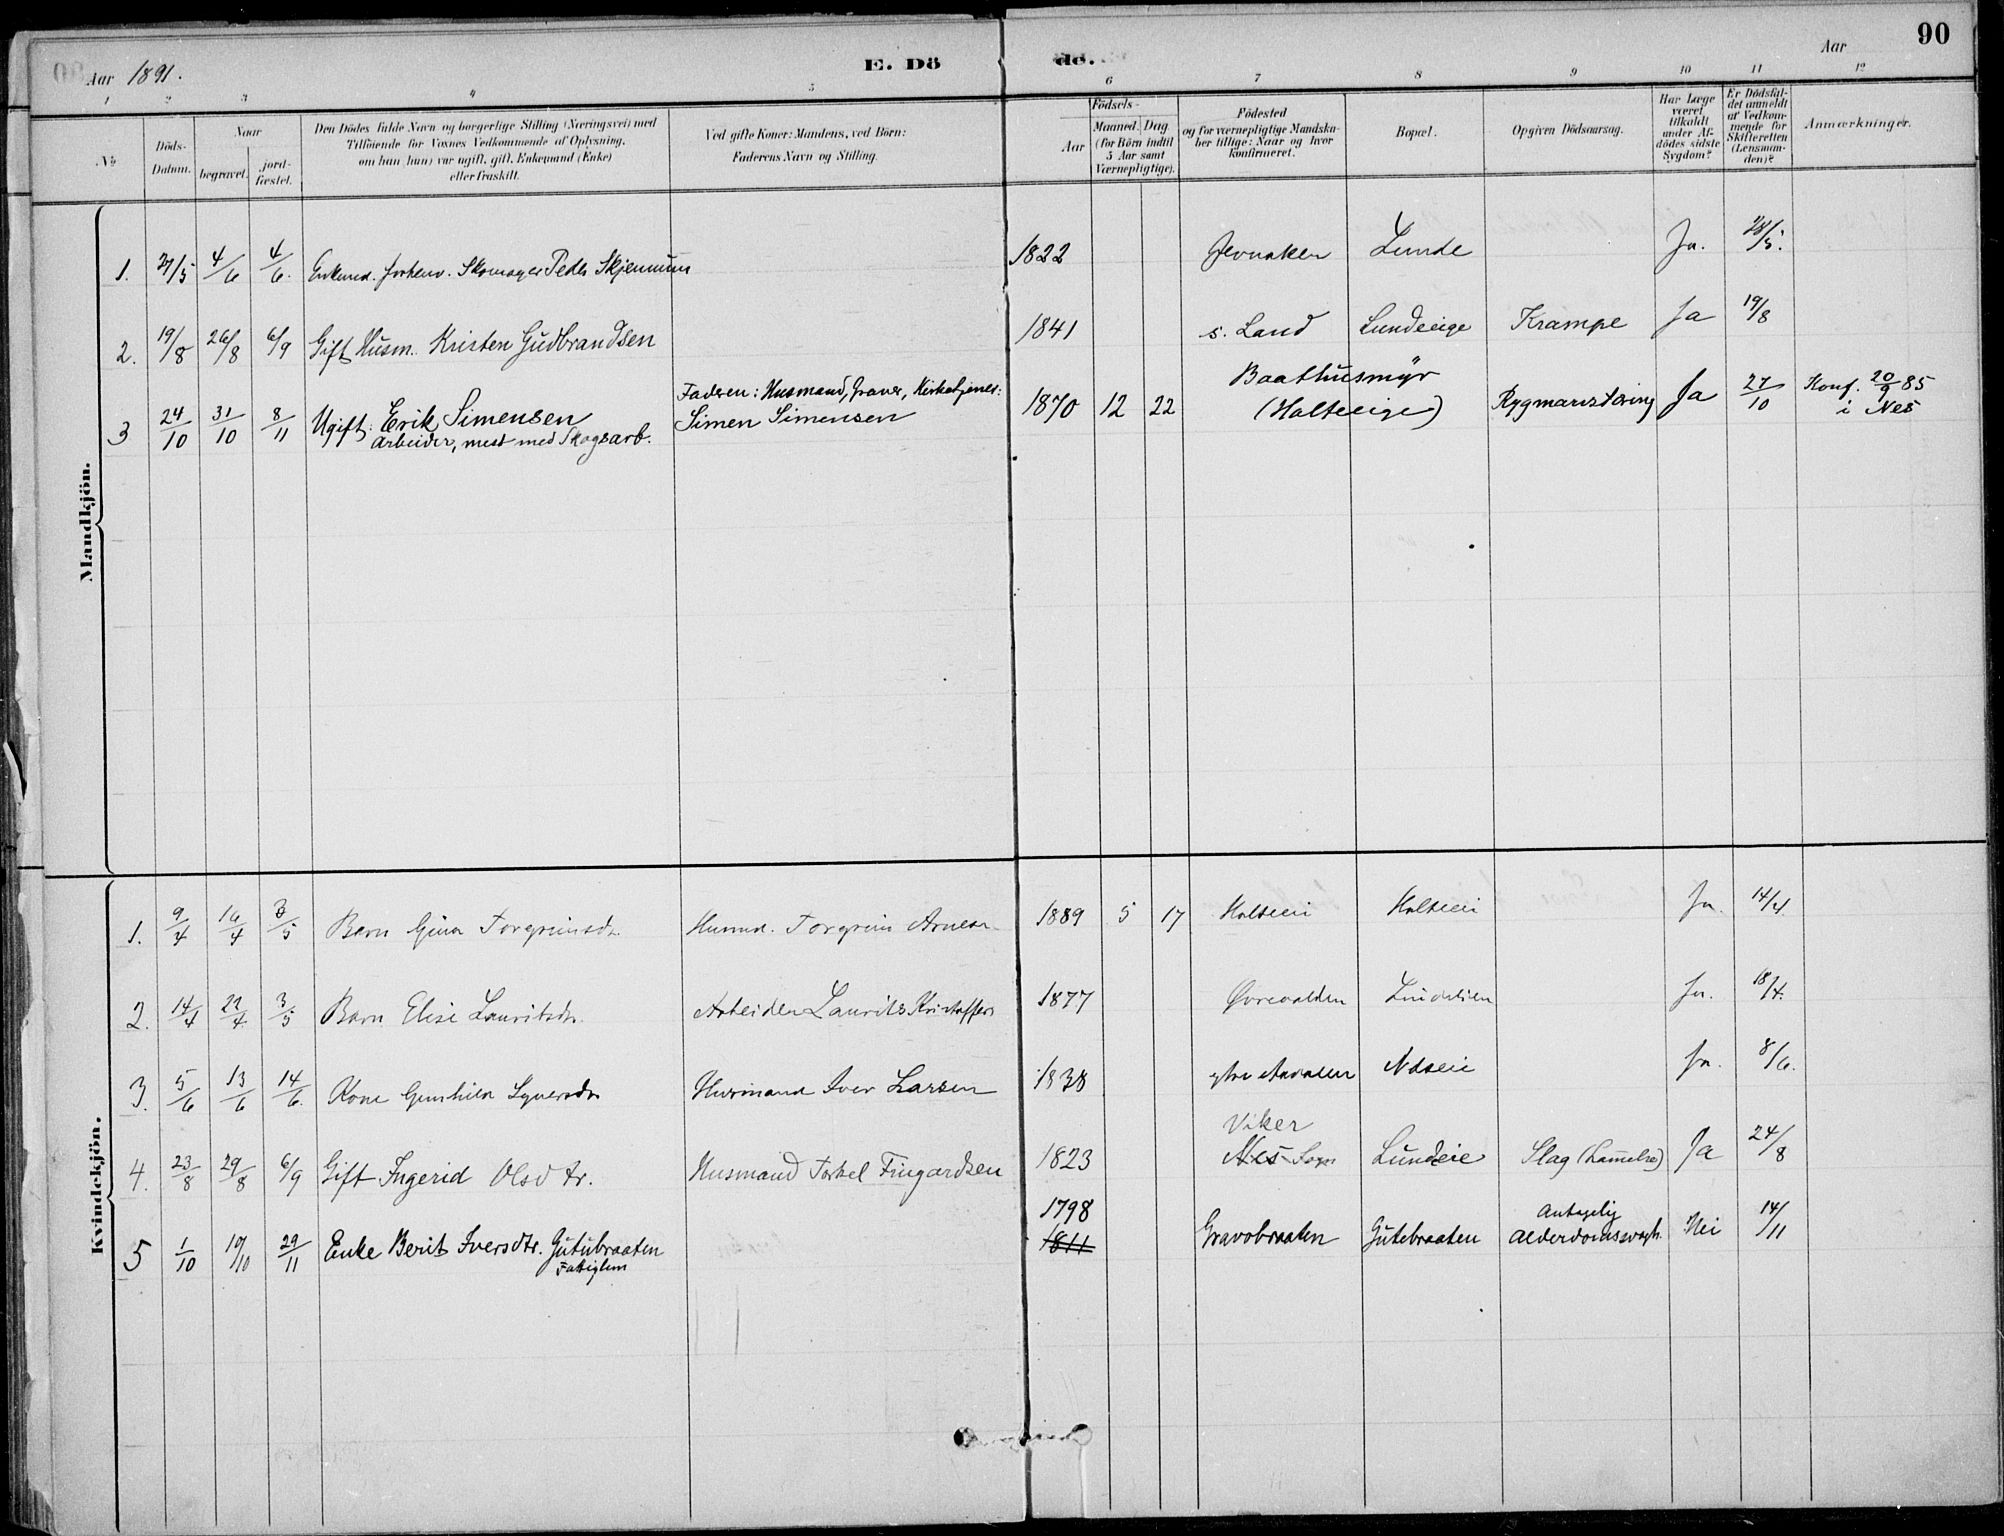 90
Aar 1891.
E. Dö de.
Aar
1 2 3 4 5 6 7 8 9 10 11 12
No
Döds-Datum.
Naar
begravet.
jord-fæstet.
Den Dödes fulde Navn og borgerlige Stilling (Næringsvei) med
Tilföiende for Voxnes Vedkommende af Oplysning,
om han (hun) var ugift, gift, Enkemand (Enke)
eller fraskilt.
Ved gifte Koner: Mandens, ved Börn:
Faderens Navn og Stilling.
Födsels-
Aar
Maaned. Dag
(for Börn indtil
5 Aar samt
Værnepligtige).
Födested
og for værnepligtige Mandska-
ber tillige: Naar og hvor
konfirmeret.
Bopæl.
Opgiven Dödsaarsag.
Har Læge
været
tilkaldt
under Af-
dödes sidste
Sygdom?
Er Dödsfal-
det anmeldt
af Vedkom-
mende for
Skifteretten
(Lensman-
den)?
Anmærkninger.
Mandkjön.
1. 27/5 4/6 4/6. Enkemd. forhenv. Skomager Peder Skjennum 1822 Jevnaker Lunde Ja. 28/5.
2. 19/8 26/8 6/9 Gift Husm. Kristen Gudbrandsen 1841 s. Land Lundeeige Krampe Ja 19/8
3 24/10 31/10 8/11 Ugift: Erik Simensen
Arbeider, mest med Skogsarb.
Faderen: Husmand, Graver, Kirketjener:
Simen Simensen
1870 12 22 Baathusmyr
(Holteeige) Rygmarvstæring Ja 27/10 Konf. 20/9 85
i Nes
Kvindekjön.
1. 9/4 19/4 3/5 Barn Gina Torgrimsdr. Husmd. Torgrim Arnesen 1889 5 17 Holteei Holteei Ja. 14/4
2. 14/4 22/4 3/5 Barn Elise Lauritsdr. Arbeider Laurits Kristoffers 1877 Øvreaalden Lindelien Ja. 18/4.
3. 5/6 13/6 14/6. Kone Gunhild Syversdr Husmand Iver Larsen 1838 Næseie Ja. 8/6.
4. 23/8 29/8 6/9 Gift Ingerid Olsdtr. Husmand Torkel Fingardsen 1823 Viker
Nes Sogn Lundeie Slag (Lamelse) Ja 24/8
5 1/10 10/10 29/11 Enke Berit Iversdtr. Gutubraaten
Fattiglem
1798
1811
Gravobraaten Gutebraaten Antagelig
Alderdomssvagh. Nei 14/11